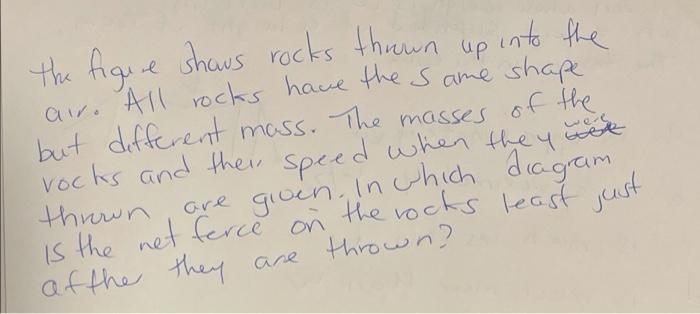 The figure shows rocks thrown up into the
air. All rocks have the same shape
but different mass. The masses of the
rocks and their speed when they were
thrown are given. In which diagram
is the net force on the rocks least just
afther they are thrown?